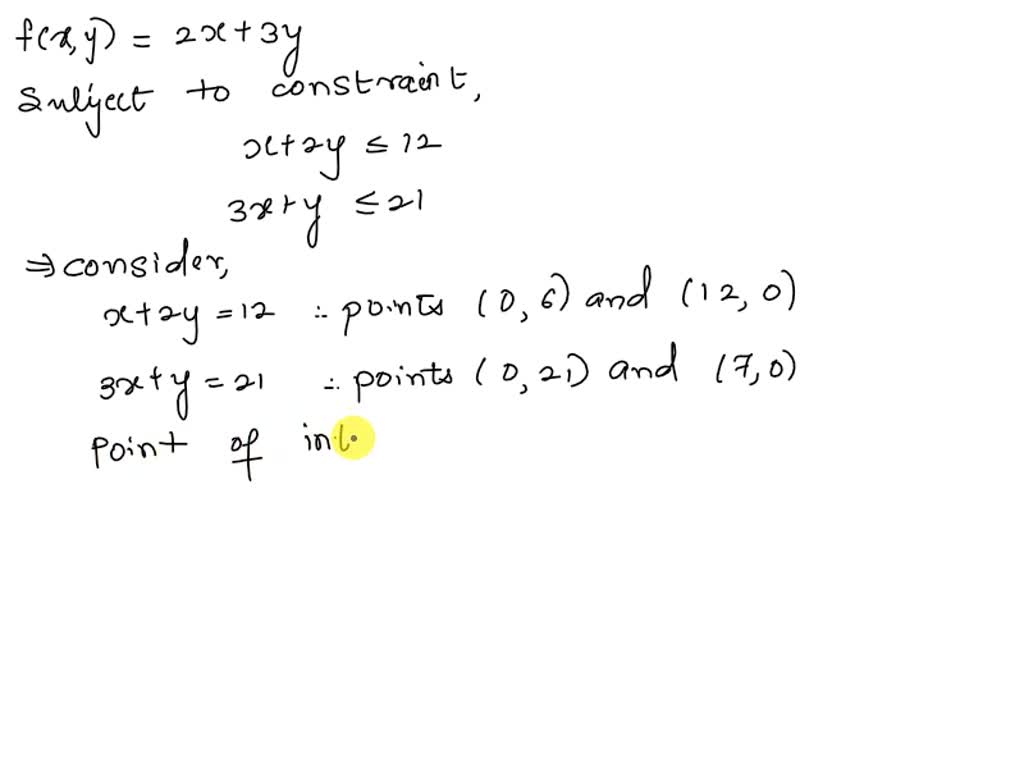 f(x,y) = 2x+3y
Subject to constraint,
x+2y ≤ 12
3x+y ≤ 21
⇒ consider,
x+2y = 12 ∴ points (0, 6) and (12, 0)
3x+y = 21 ∴ points (0, 21) and (7, 0)
Point of int